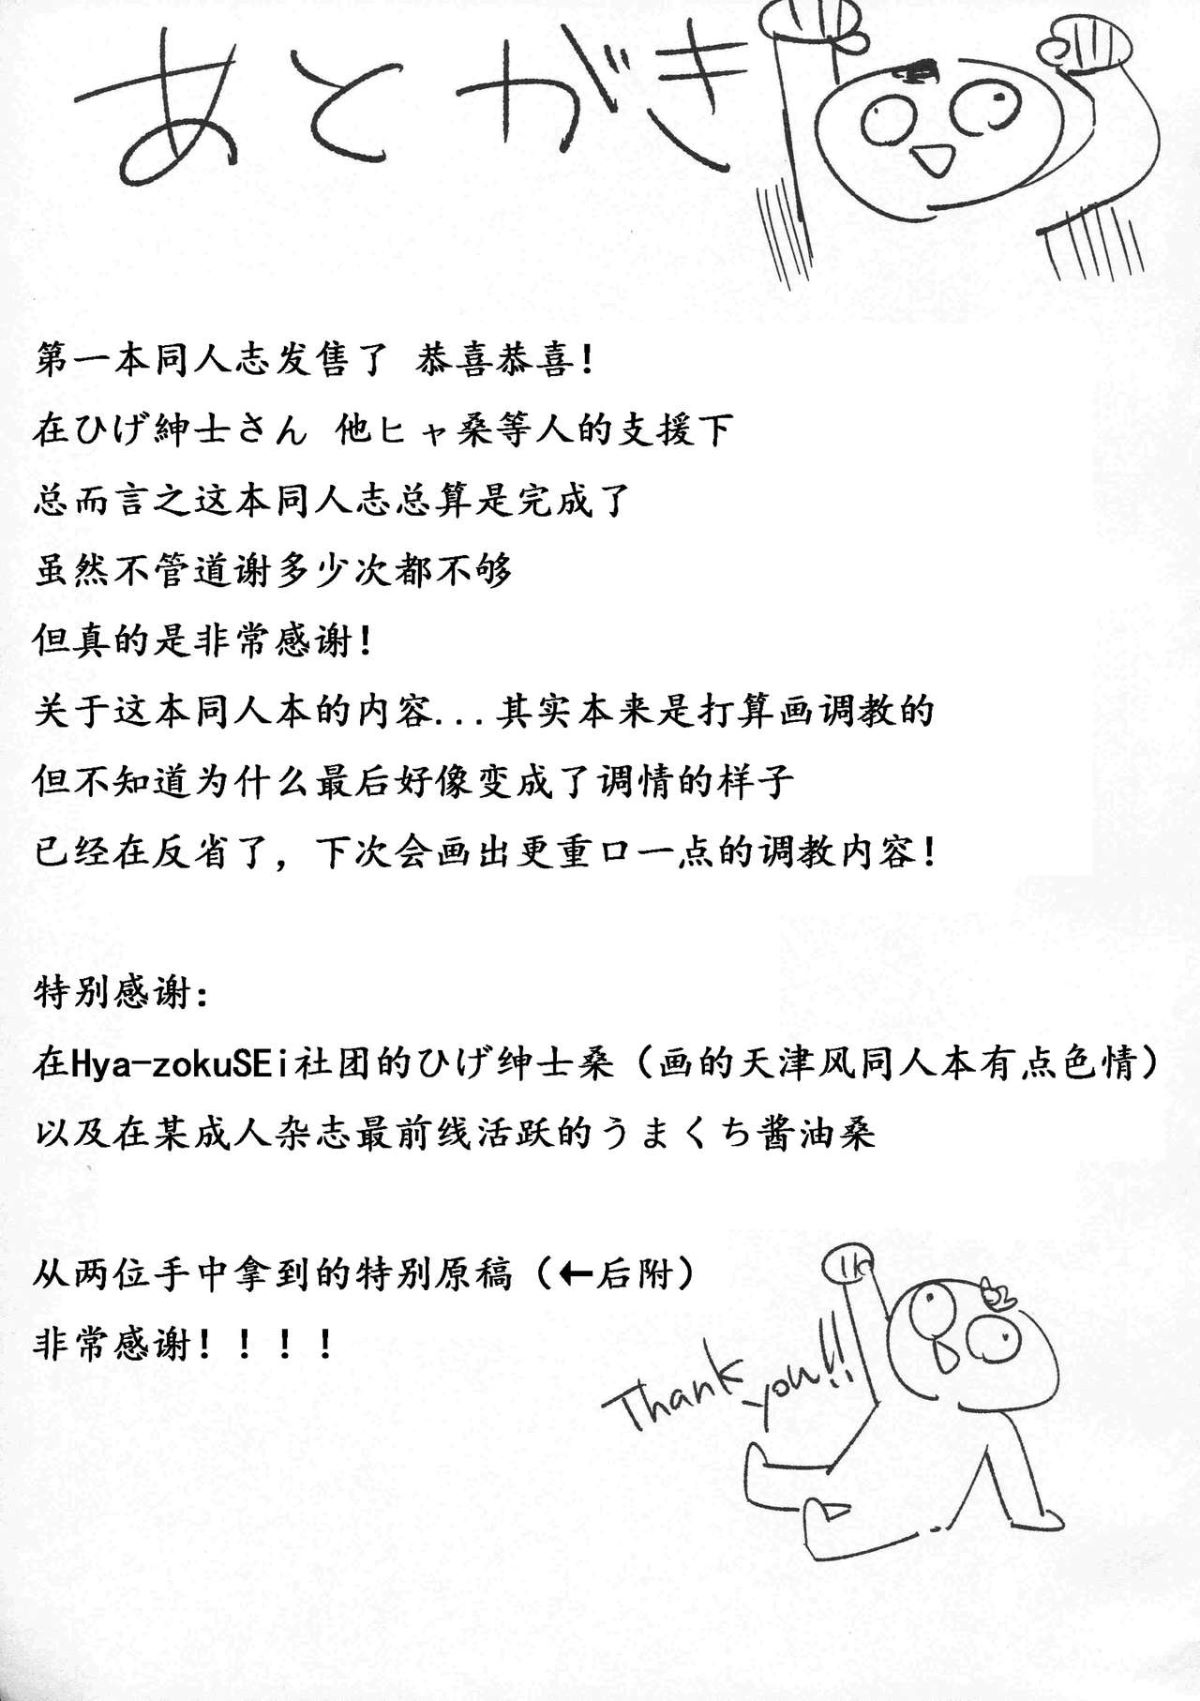 あとがき
第一本同人志发售了 恭喜恭喜!
在ひげ紳士さん 他ヒャ桑等人的支援下
总而言之这本同人志总算是完成了
虽然不管道谢多少次都不够
但真的是非常感谢!
关于这本同人本的内容...其实本来是打算画调教的
但不知道为什么最后好像变成了调情的样子
已经在反省了，下次会画出更重口一点的调教内容!
特别感谢:
在Hya-zokuSEi社团的ひげ绅士桑（画的天津风同人本有点色情）
以及在某成人杂志最前线活跃的うまくち酱油桑
从两位手中拿到的特别原稿（←后附）
非常感谢!!!!
Thank you!!